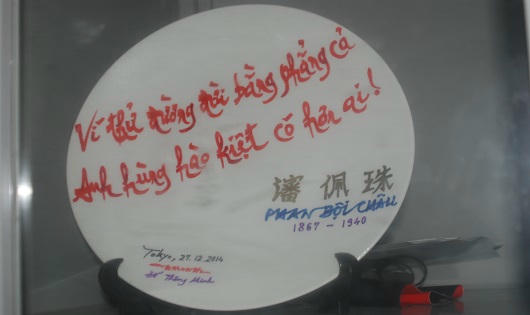 Ví thử đường đời bằng phẳng cả
Anh hùng hào kiệt có hơn ai!
瀋 佩 珠
PHAN BỘI CHÂU
1867 - 1940
Tokyo, 27.12.2014
Đỗ Thông Minh